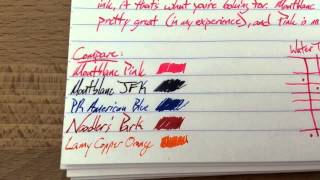 ink, if that's what you're looking for. Montblanc
pretty great (in my experience), and Pink is no
Compare:
Water T
Montblanc Pink
Montblanc JFK
PR American Blue
Noodler's Park
Lamy Copper Orange